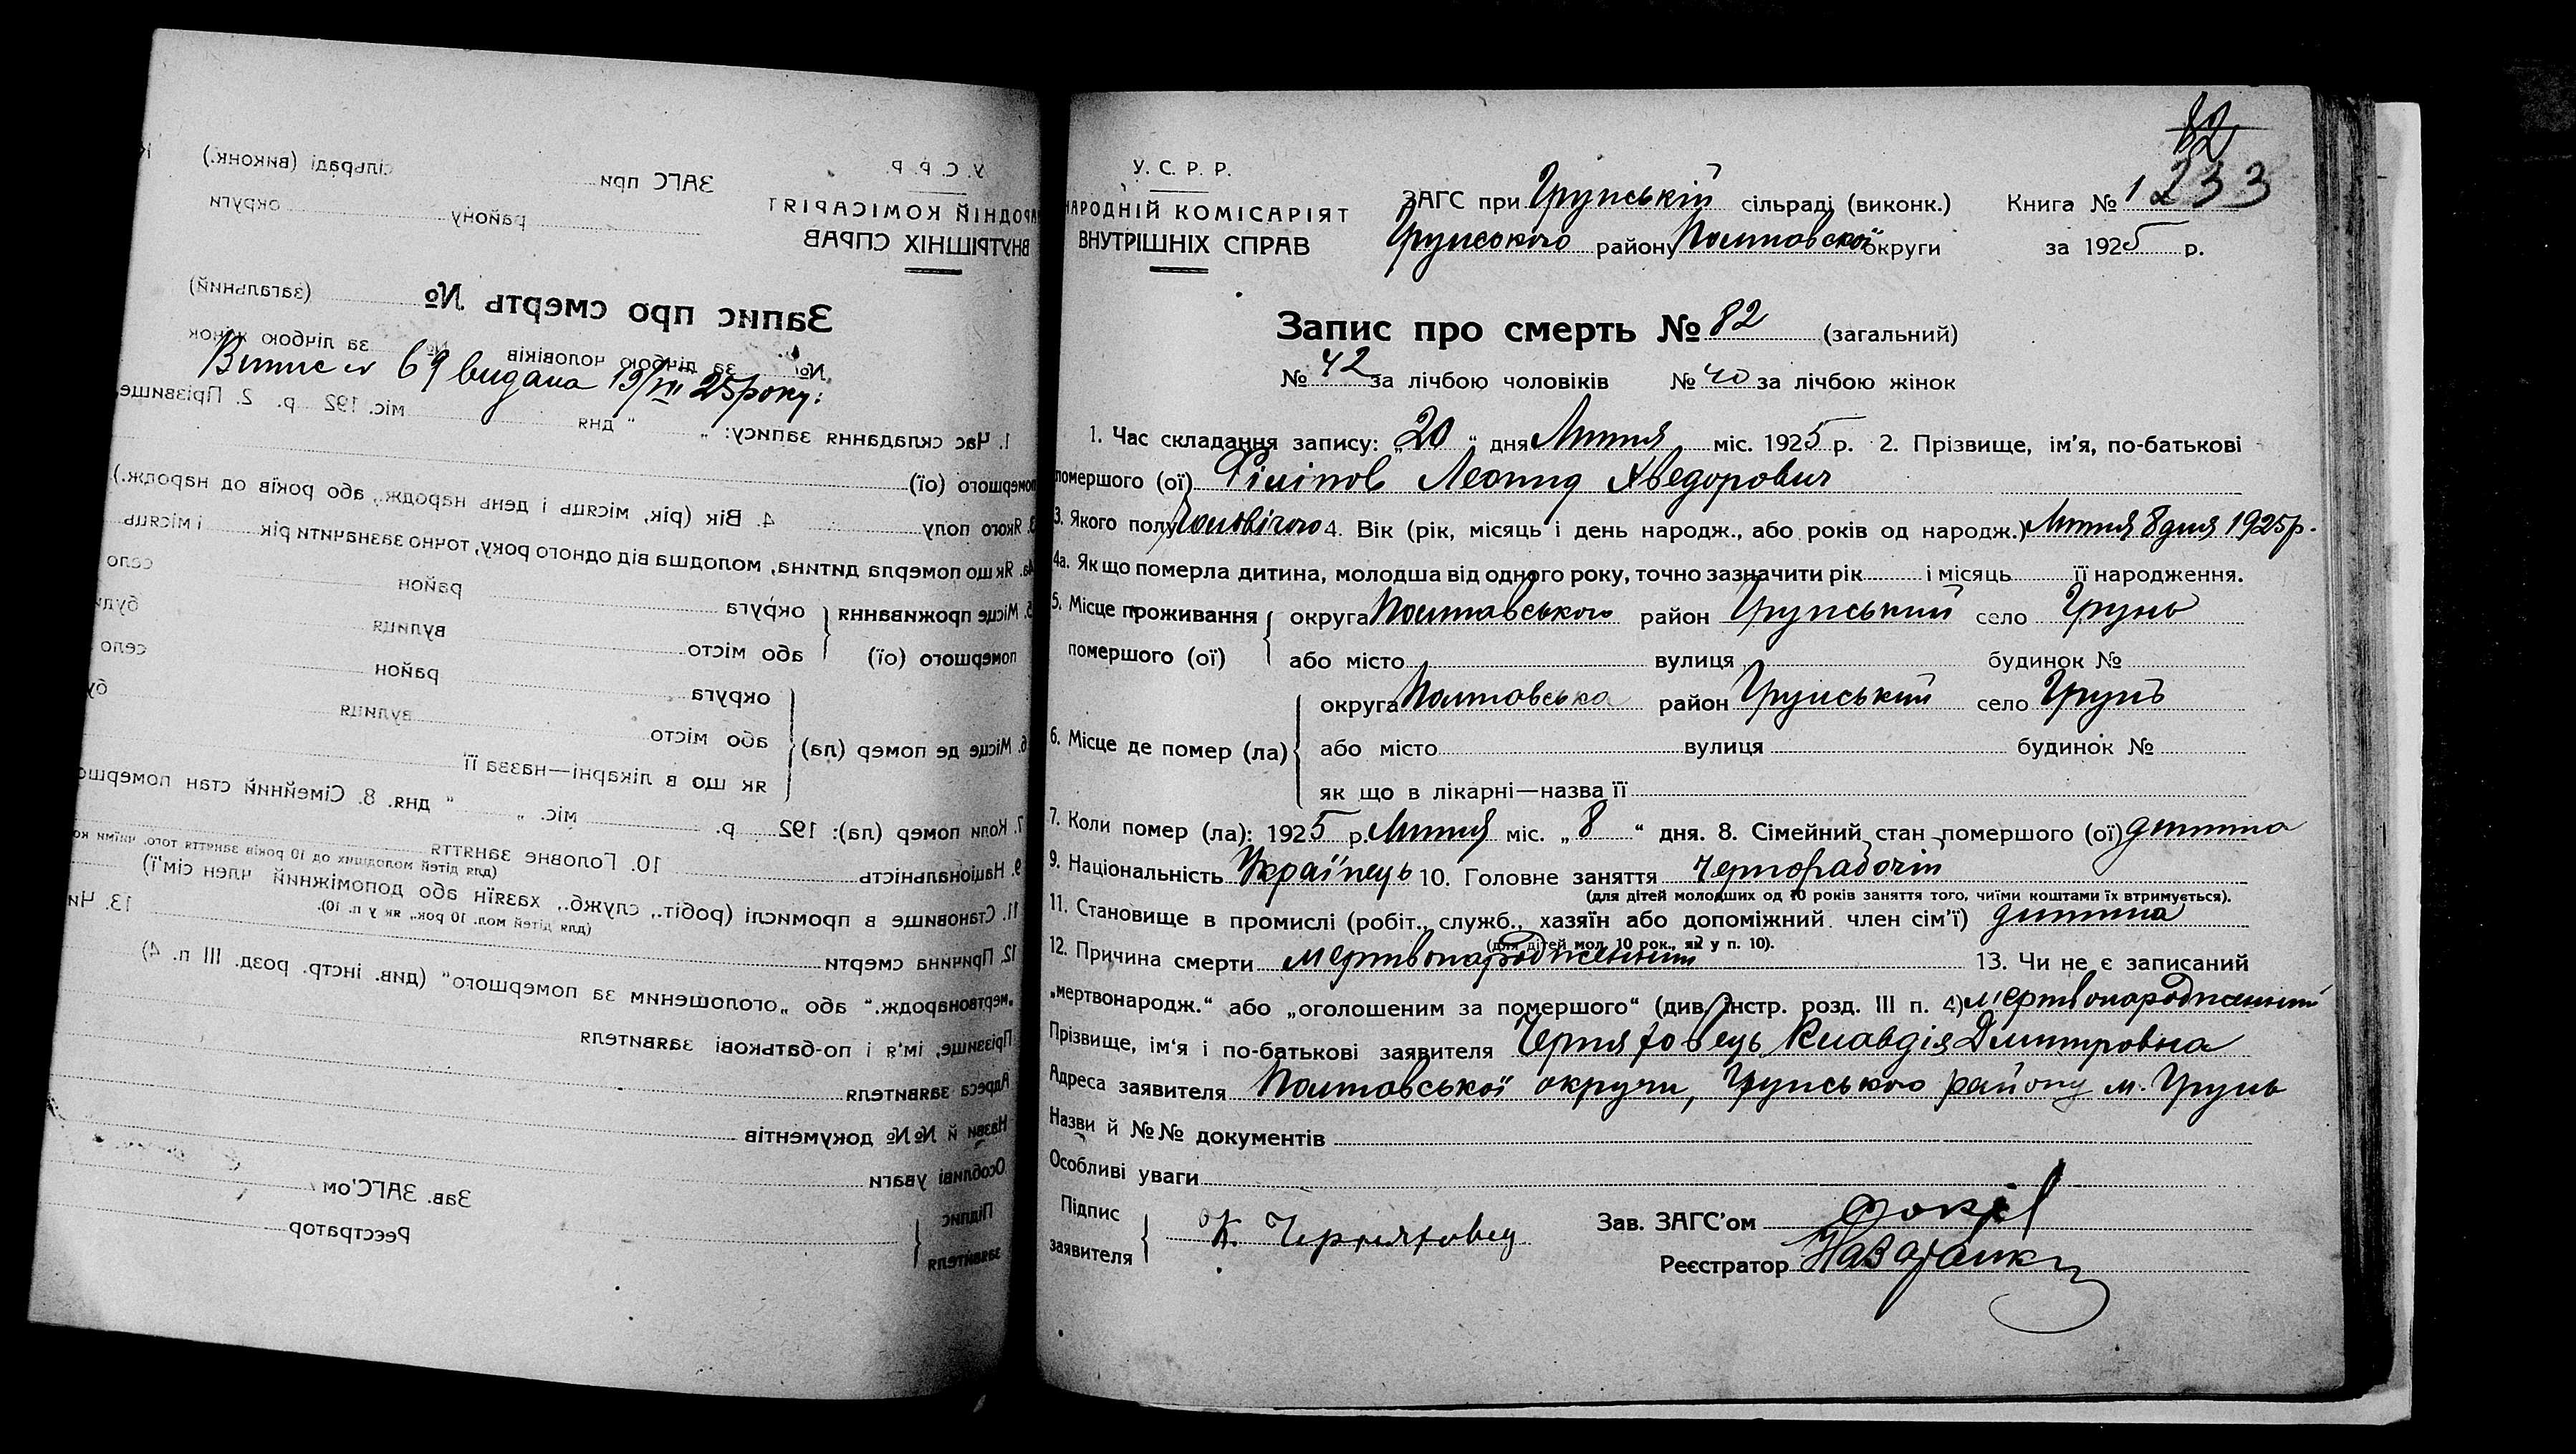 Випис № 69 видана 19/VII 25 року:
82
У. С. Р. Р.
НАРОДНІЙ КОМІСАРІЯТ
ВНУТРІШНІХ СПРАВ
ЗАГС при Грунській сільраді (виконк.)
Грунського району Полтавської округи
Книга № 1 233
за 1925 р.
Запис про смерть № 82 (загальний)
№ 42 за лічбою чоловіків № 40 за лічбою жінок
1. Час складання запису: „20“ дня Липня міс. 1925 р. 2. Прізвище, ім'я, по-батькові
помершого (ої) Філіпов Леонид Хведорович
3. Якого полу Чоловічого 4. Вік (рік, місяць і день народж., або років од народж.) Липня 8 дня 1925 р.
4а. Як що померла дитина, молодша від одного року, точно зазначити рік і місяць її народження.
5. Місце проживання помершого (ої) округа Полтавського район Грунський село Грунь
або місто вулиця будинок №
6. Місце де помер (ла) округа Полтавська район Грунський село Грунь
або місто вулиця будинок №
як що в лікарні—назва її
7. Коли помер (ла): 1925 р. Липня міс. „8“ дня. 8. Сімейний стан помершого (ої) дитина
9. Національність Українець 10. Головне заняття чернорабочій
(для дітей молодших од 10 років заняття того, чиїми коштами їх втримується).
11. Становище в промислі (робіт., служб., хазяїн або допоміжний член сім'ї) дитина
(для дітей мол. 10 рок., як у п. 10).
12. Причина смерти мертвонародженний 13. Чи не є записаний
„мертвонародж.“ або „оголошеним за помершого“ (див. інстр. розд. III п. 4) мертвонародженний
Прізвище, ім'я і по-батькові заявителя Черняховець Клавдія Дмитровна
Адреса заявителя Полтавської округи, Грунського району м. Грунь
Назви й №№ документів
Особливі уваги
Підпис заявителя К. Черняховец
Зав. ЗАГС'ом
Реєстратор